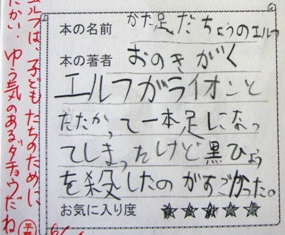 本の名前 かた足だちょうのエルフ
本の著者 おのきがく
エルフがライオンと
たたかって一本足になっ
てしまったけど黒ひょう
を殺したのがすごかった。
お気に入り度 ★★★★★
エルフは、子どもたちのために
たたか…ゆう気のあるダチョウだね